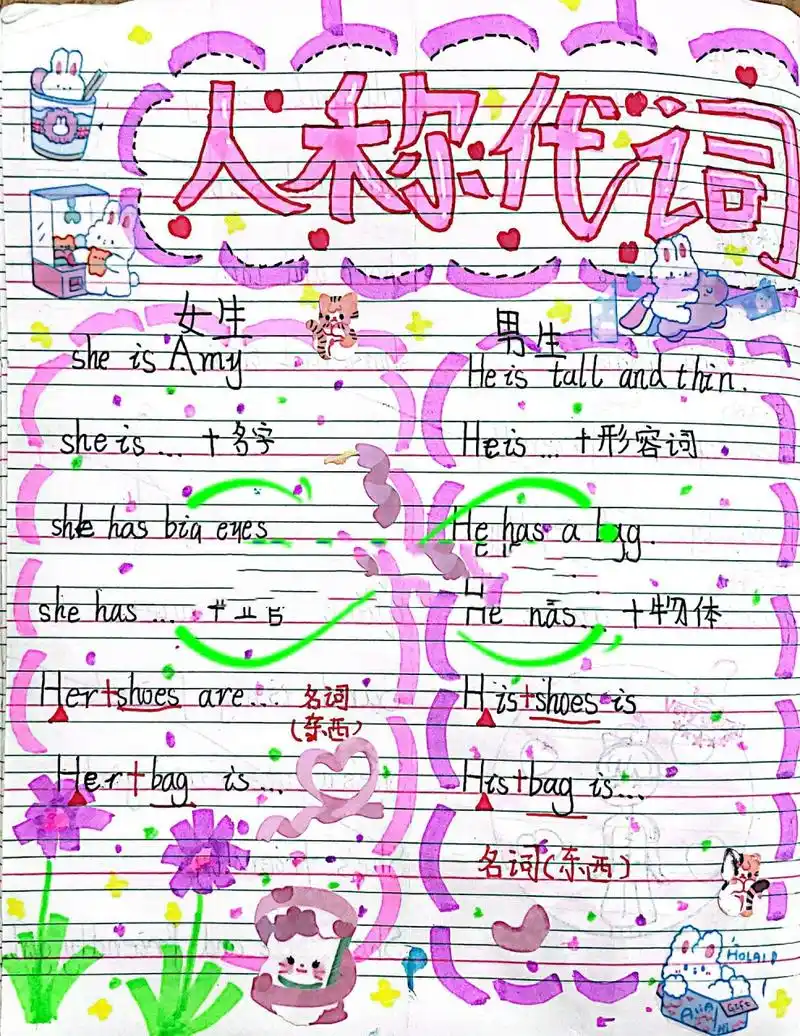 人称代词
女生
she is Amy
she is ... +名字
she has big eyes
she has ...
Her+shoes are... 名词
(东西)
Her+bag is...
男生
He is tall and thin.
He is ... +形容词
He has a bag.
He has... +物体
His+shoes is
His+bag is...
名词(东西)
HOLA!